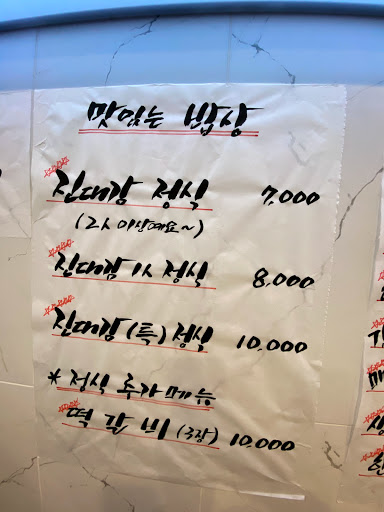 맛있는 밥상
진대감 정식 7,000
(2人 이상예요~)
진대감 1人 정식 8,000
진대감 (특) 정식 10,000
* 정식 추가 메뉴
떡갈비 (3장) 10,000